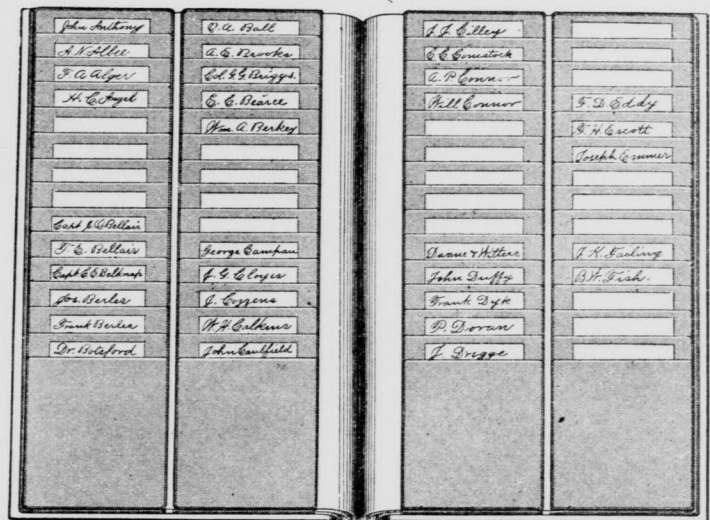 John Anthony
A. N. Albee
F. A. Alger
H. C. Angel
Capt
T. E. Bellair
Capt
Jos. Berles
Frank Berles
Dr. Botsford
O. A. Ball
A. E. Brooks
Col. G. G. Briggs.
E. C. Bearce
Wm. A. Berkey
George Campau
J. G. Cloyes
J. Cozzens
W. H. Calkins
John Caulfield
J. F. Cilley
C. C. Comstock
A. P. Connor
Will Connor
Duane & Witters
John Duffy
Frank Dyk
P. Doran
J. Dregge
F. D. Eddy
F. H. Escott
Joseph Emmer
J. K. Fasling
B. W. Fish.